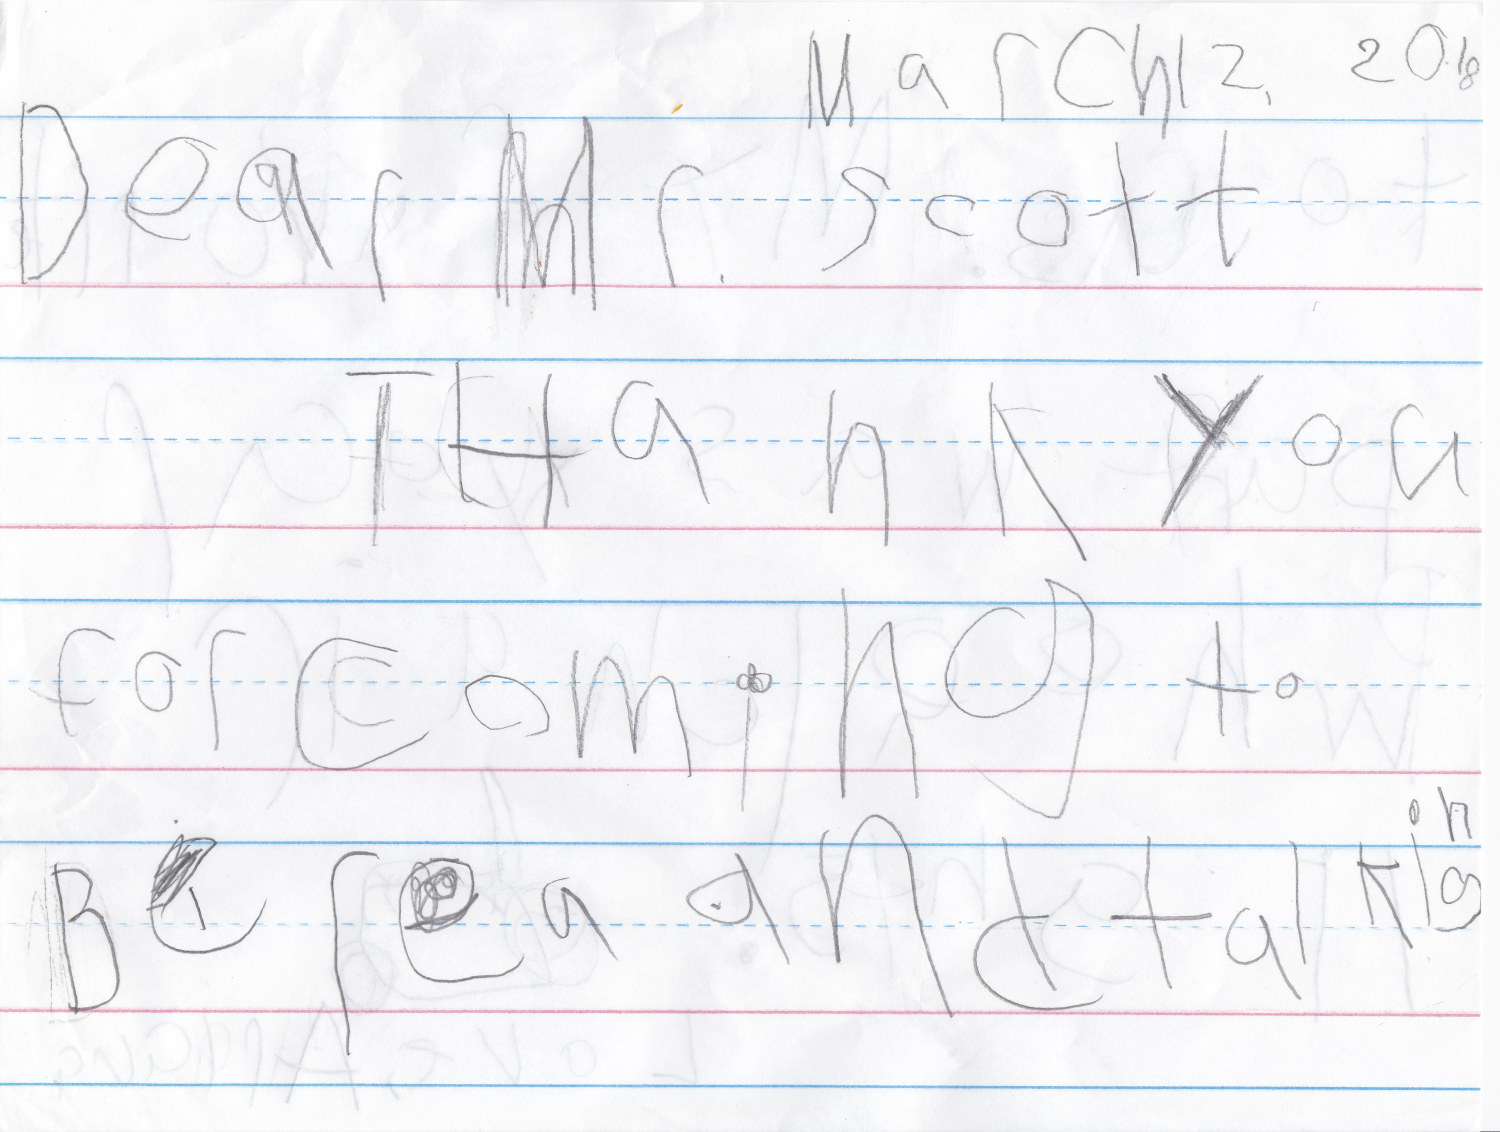 March 12, 2018
Dear Mr. scott
THank you
for coming to
Berea and talking